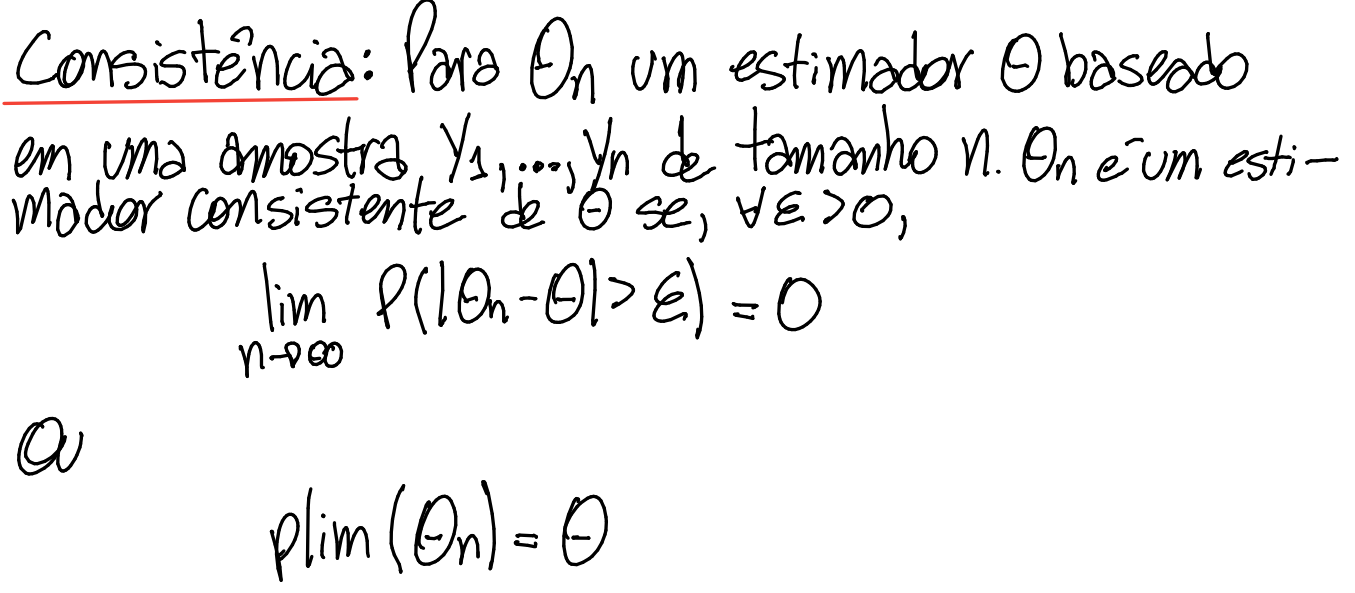 Consistência: Para θn um estimador θ baseado
em uma amostra Y1,...,Yn de tamanho n. θn é um esti-
mador consistente de θ se, ∀ε>0,
lim P(|θn-θ|>ε) = 0
n→∞
ou
plim(θn) = θ